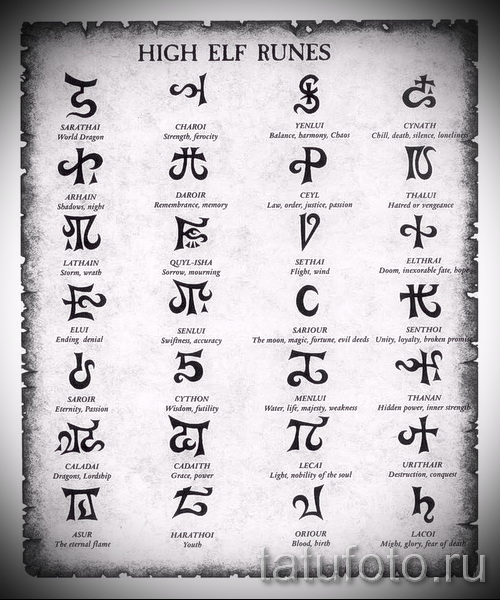 HIGH ELF RUNES
SARATHAI CHAROI YENLUI CYNATH
World Dragon Strength, ferocity Balance, harmony, Chaos Chill, death, silence, loneliness
ARHAIN DAROIR CEYL THALUI
Shadows, night Remembrance, memory Law, order, justice, passion Hatred or vengeance
LATHAIN QUYL-ISHA SETHAI ELTHRAI
Storm, wrath Sorrow, mourning Flight, wind Doom, inexorable fate, hope
ELUI SENLUI SARIOUR SENTHOI
Ending denial Swiftness, accuracy The moon, magic, fortune, evil deeds Unity, loyalty, broken promises
SAROIR CYTHON MENLUI THANAN
Eternity, Passion Wisdom, futility Water, life, majesty, weakness Hidden power, inner strength
CALADAI CADAITH LECAI URITHAIR
Dragons, Lordship Grace, power Light, nobility of the soul Destruction, conquest
ASUR HARATHOI ORIOUR LACOI
The eternal flame Youth Blood, birth Might, glory, fear of death
tatufoto.ru